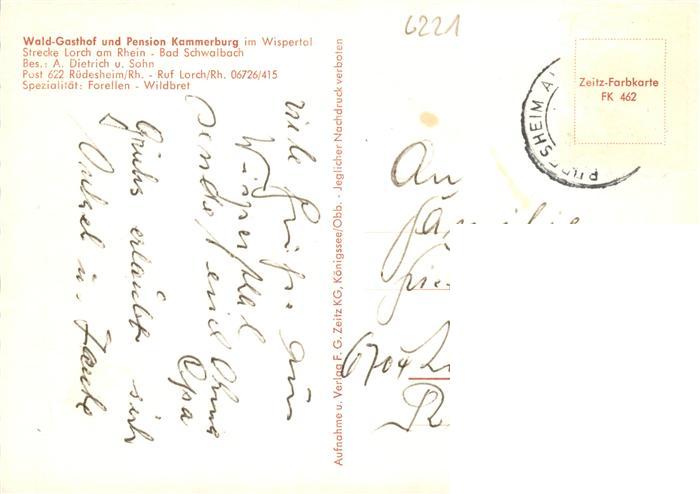 6221
Wald-Gasthof und Pension Kammerburg im Wispertal
Strecke Lorch am Rhein - Bad Schwalbach
Bes.: A. Dietrich u. Sohn
Post 622 Rüdesheim/Rh. - Ruf Lorch/Rh. 06726/415
Spezialität: Forellen - Wildbret
Viele Grüße aus
Wispertal
sendet euch Oma
Opa
Grüße erlaubt sich
Onkel u. Tante
Aufnahme u. Verlag F. G. Zeitz KG, Königssee/Obb. - Jeglicher Nachdruck verboten
Zeitz-Farbkarte
FK 462
RÜDESHEIM A
An
6704